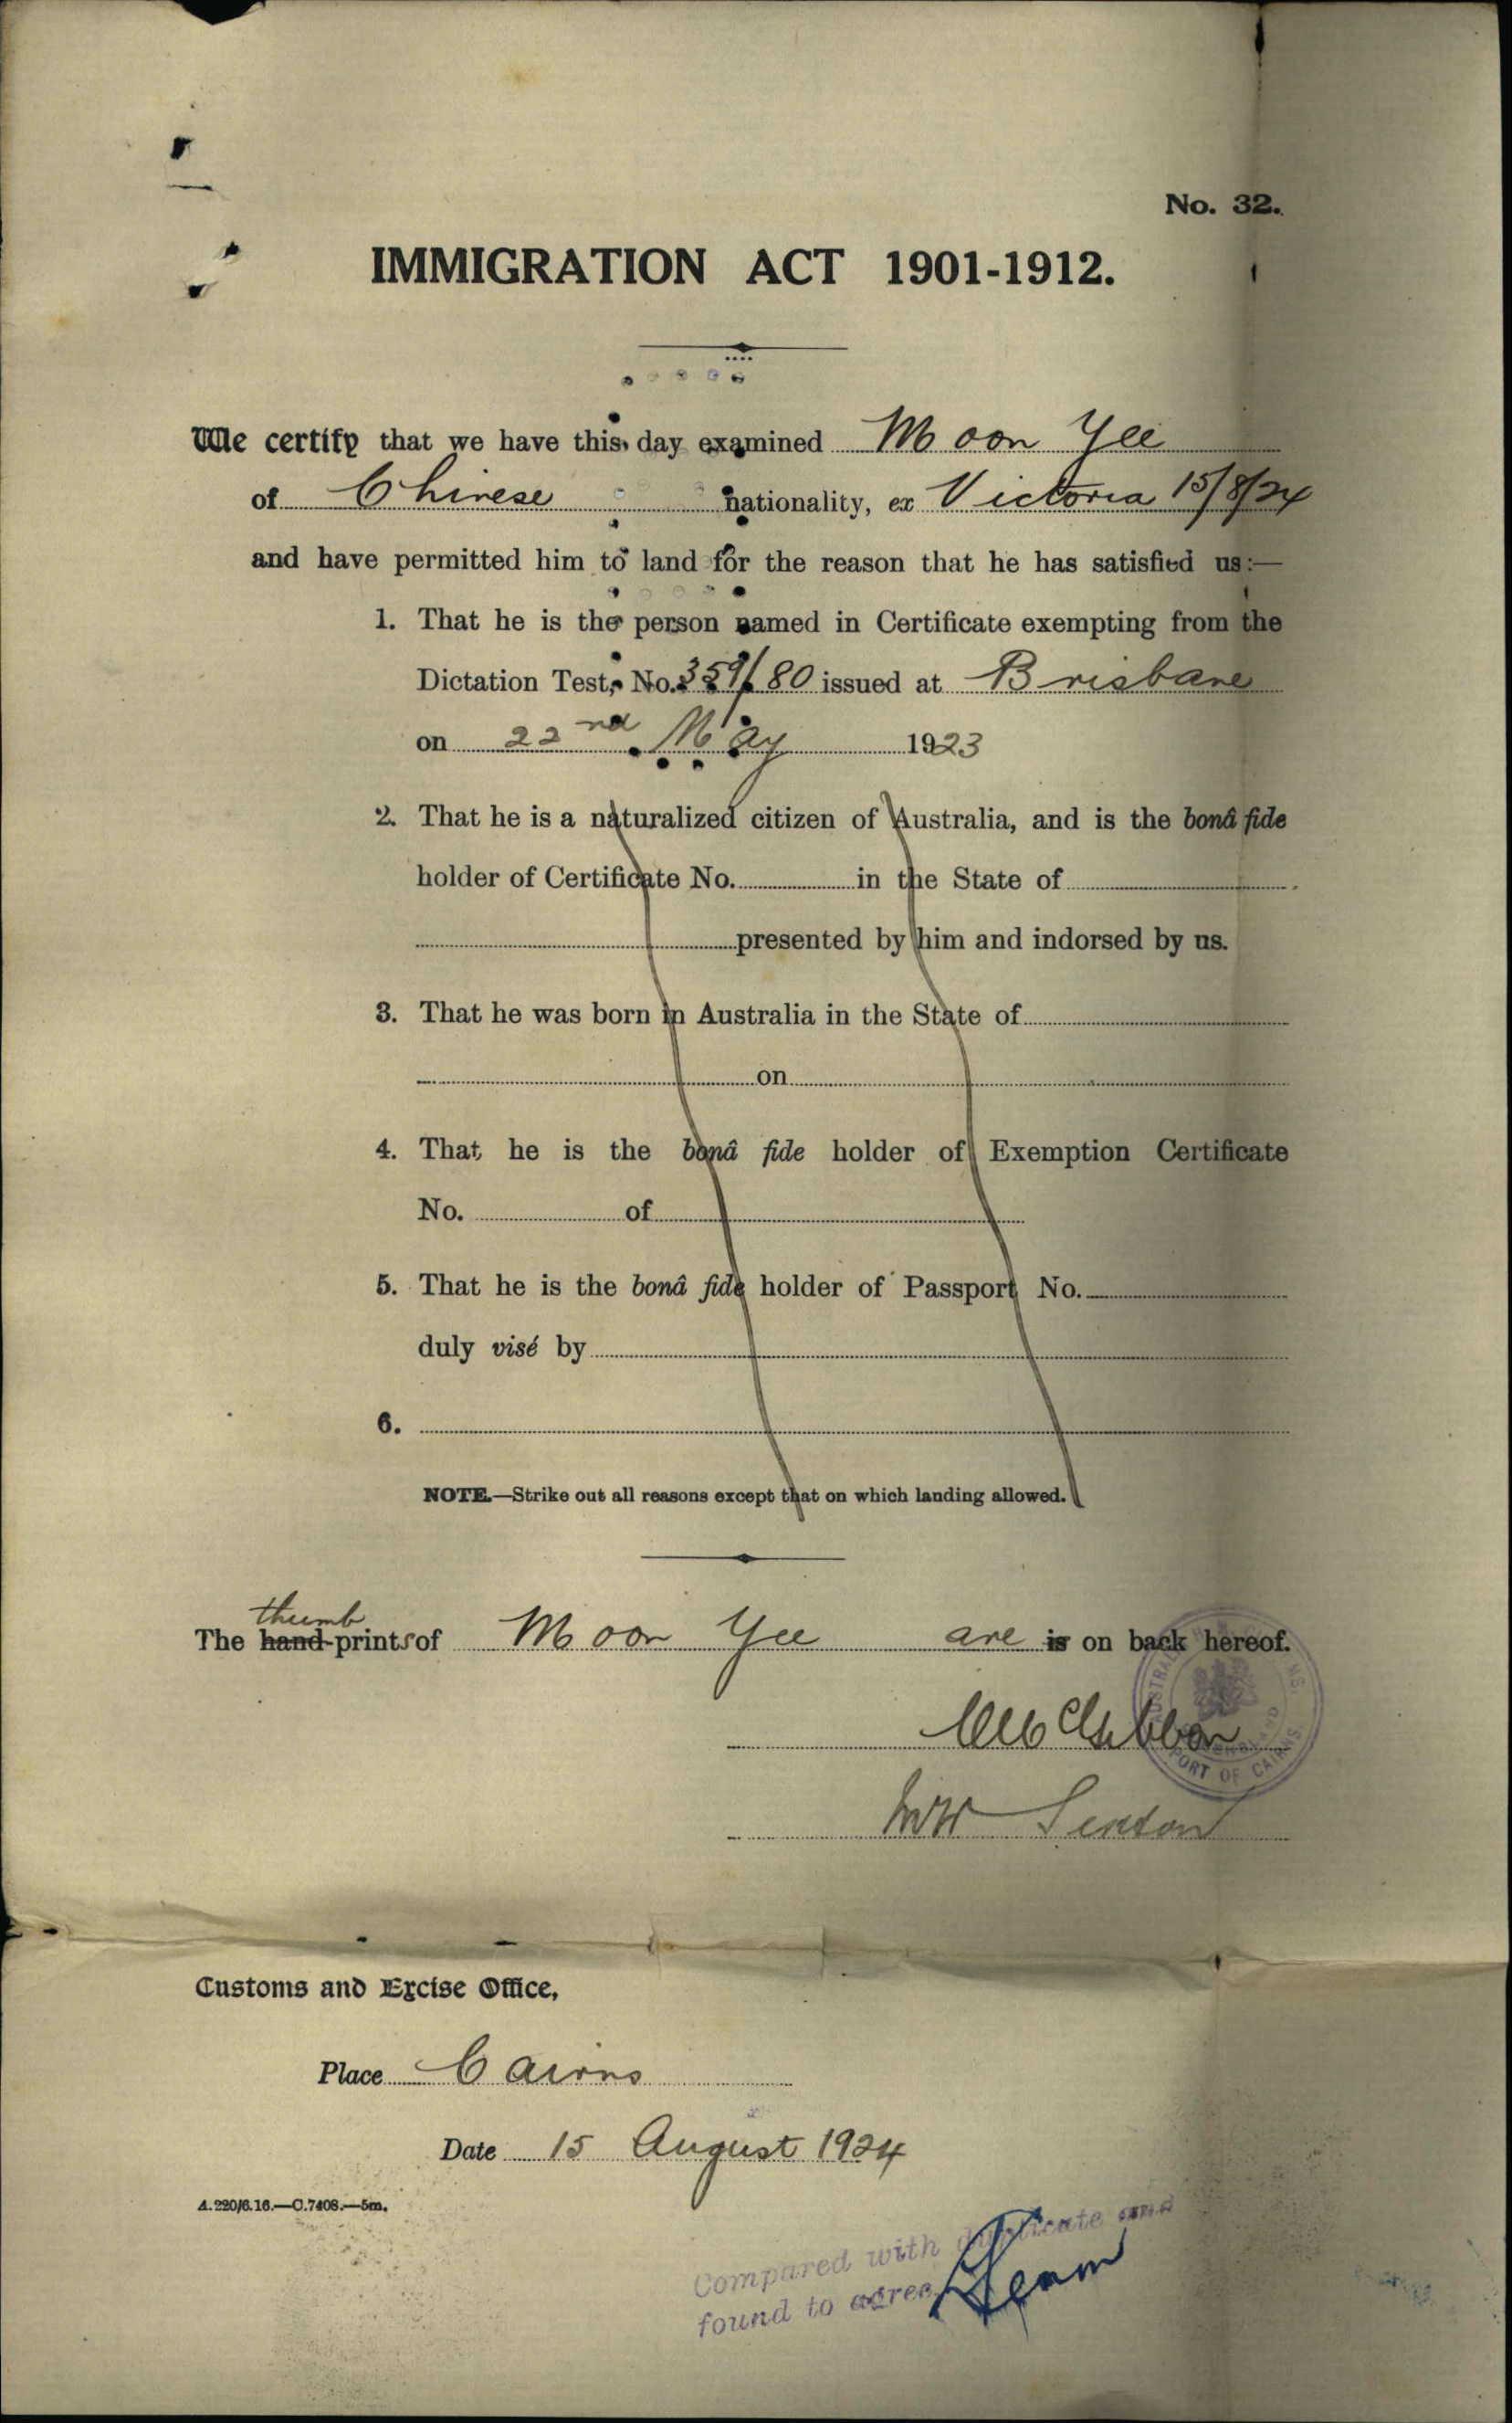 No. 32.
IMMIGRATION ACT 1901-1912.
We certify that we have this day examined Moon Yee
of Chinese nationality, ex Victoria 15/8/24
and have permitted him to land for the reason that he has satisfied us:—
1. That he is the person named in Certificate exempting from the
Dictation Test, No. 359/80 issued at Brisbane
on 22nd May 1923
2. That he is a naturalized citizen of Australia, and is the bonâ fide
holder of Certificate No. in the State of
presented by him and indorsed by us.
3. That he was born in Australia in the State of
on
4. That he is the bonâ fide holder of Exemption Certificate
No. of
5. That he is the bonâ fide holder of Passport No.
duly visé by
6.
NOTE.—Strike out all reasons except that on which landing allowed.
thumb
The hand-prints of Moon Yee are is on back hereof.
PORT OF CAIRNS
Customs and Excise Office,
Place Cairns
Date 15 August 1924
A.220/6.16.—C.7408.—5m.
Compared with duplicate and
found to agree